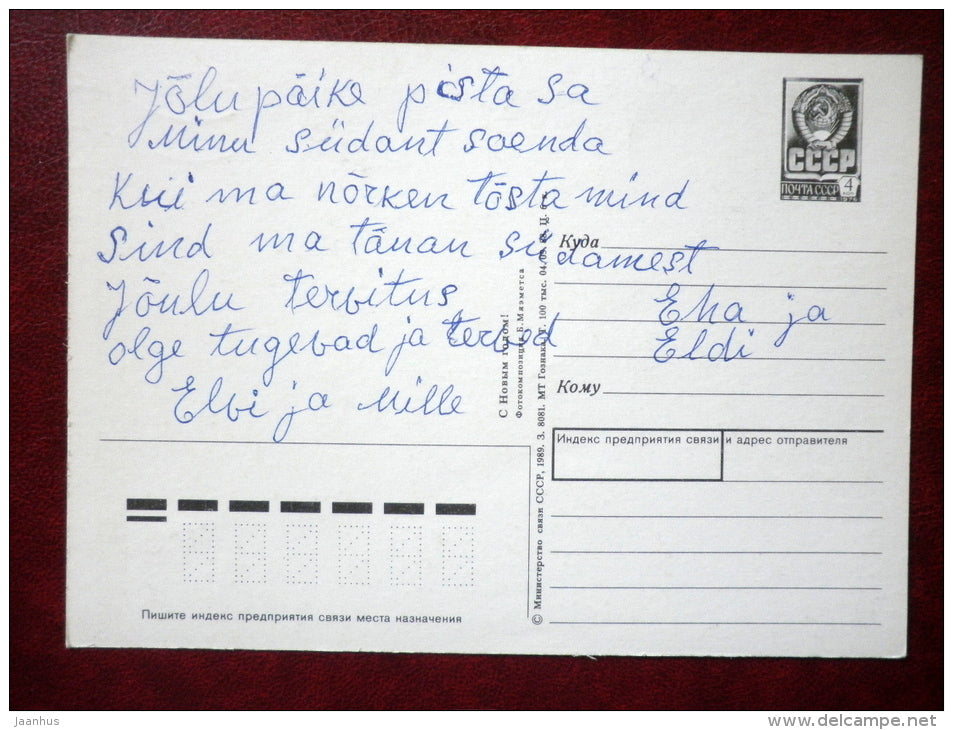 Jõlu päike pista sa
Minu südant soenda
Kui ma nõrken tõsta mind
Sind ma tänan südamest
Jõulu tervitus
olge tugevad ja terved
Elvi ja Mille
Eha ja
Eldi
СССР
ПОЧТА СССР 4
1976
Куда
Кому
Индекс предприятия связи и адрес отправителя
С Новым годом!
Фотокомпозиция Б. Мяэметса
© Министерство связи СССР, 1989. З. 8081. МТ Гознака. 100 тыс. 04.05.
Пишите индекс предприятия связи места назначения
Jaanhus
www.delcampe.net